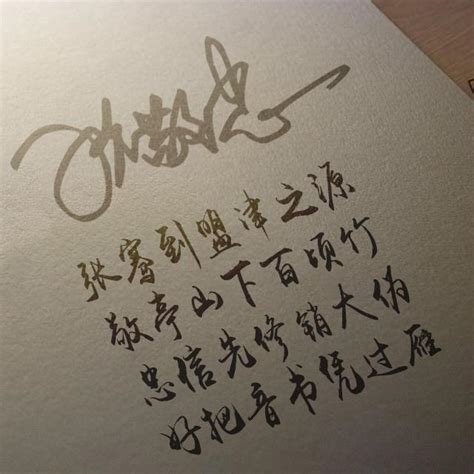 张敬忠
张骞到盟津之源
敬亭山下百顷竹
忠信先修销大伪
好把音书凭过雁